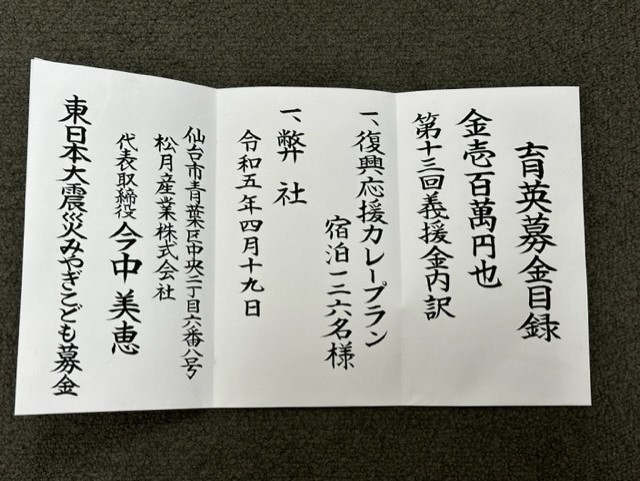 育英募金目録
金壱百萬円也
第十三回義援金内訳
一、復興応援カレープラン
宿泊一二六名様
一、弊社
令和五年四月十九日
仙台市青葉区中央二丁目六番八号
松月産業株式会社
代表取締役 今中美恵
東日本大震災みやぎこども募金